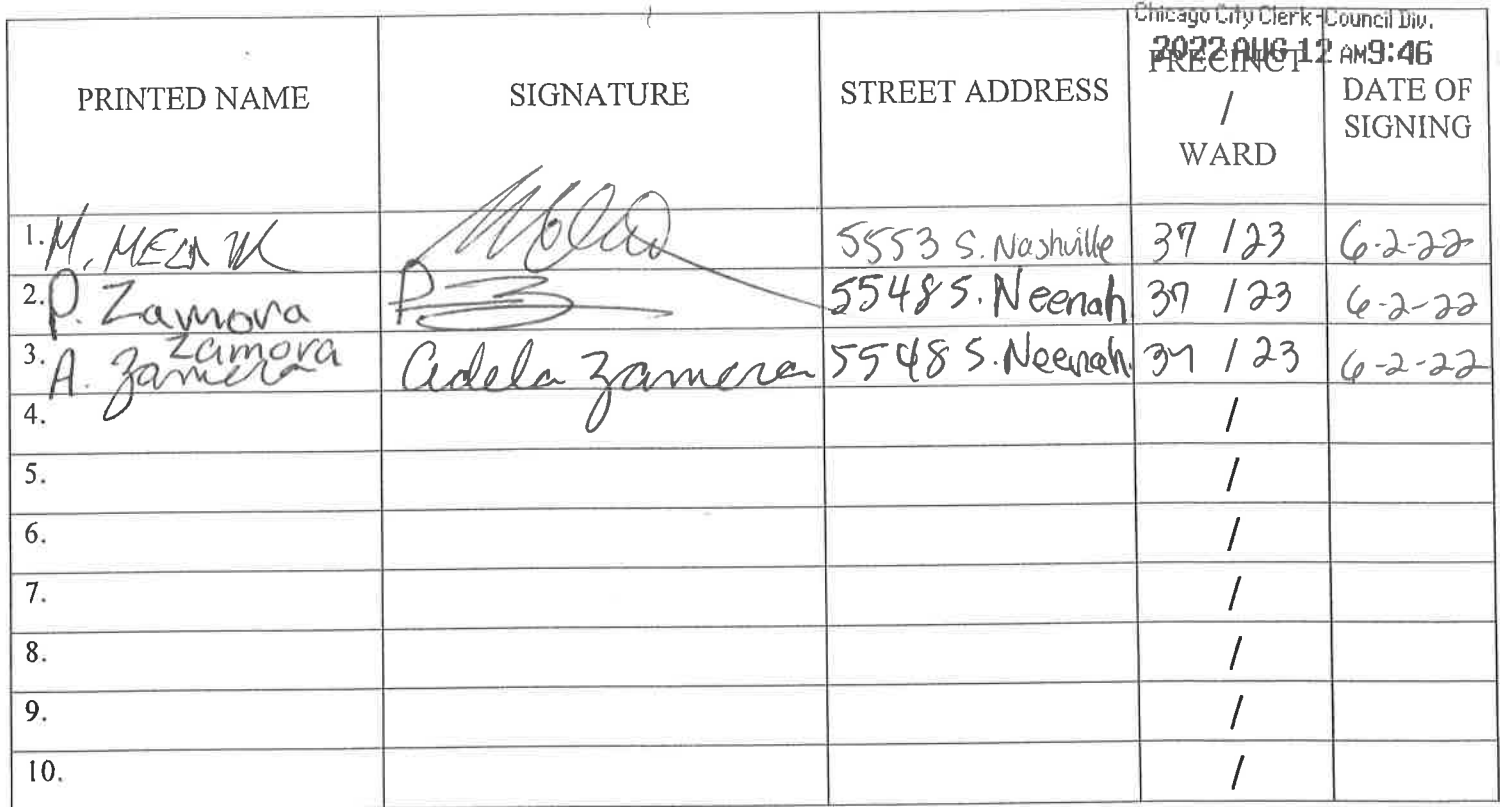 Chicago City Clerk-Council Div.
2022 AUG 12 AM 9:46
PRINTED NAME SIGNATURE STREET ADDRESS PRECINCT / WARD DATE OF SIGNING
1. M. 5553 S. Nashville 37 / 23 6-2-22
2. P. Zamora 5548 S. Neenah 37 / 23 6-2-22
Zamora
3. A. Zamora Adela Zamora 5548 S. Neenah. 37 / 23 6-2-22
4. /
5. /
6. /
7. /
8. /
9. /
10. /